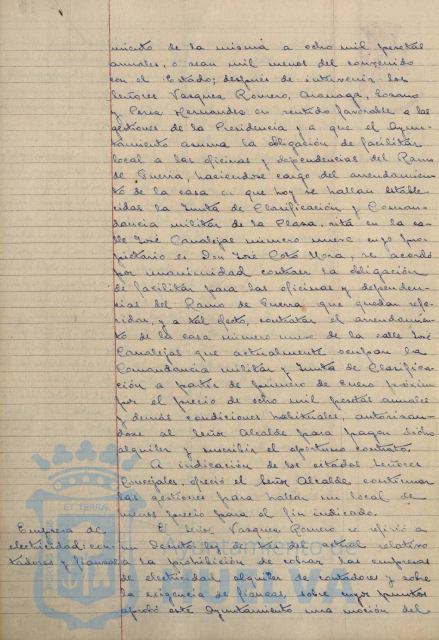 miento de la misma a ocho mil pesetas
anuales, o sean mil menos del convenido
con el Estado; después de intervenir los
Señores Vazquez Romero, Lozano
y Perez Hernandez en sentido favorable a las
gestiones de la Presidencia y a que el Ayun-
tamiento asuma la obligación de facilitar
local a las oficinas y dependencias del Ramo
de Guerra, haciendose cargo del arrendamien-
to de la casa en que hoy se hallan estable-
cidas la Junta de Clasificación y Coman-
dancia militar de la Plaza, sita en la ca-
lle José Canalejas número nueve cuyo pro-
pietario es Don José Coto Mora, se acordó
por unanimidad contraer la obligación
de facilitar para las oficinas y dependen-
cias del Ramo de Guerra que quedan refe-
ridas, y a tal efecto, contratar el arrendamien-
to de la casa número nueve de la calle José
Canalejas que actualmente ocupan la
Comandancia militar y Junta de Clasifica-
ción a partir de primero de Enero próximo
por el precio de ocho mil pesetas anuales
y demás condiciones habituales, autorizan-
dose al Señor Alcalde para pagar dicho
alquiler y suscribir el oportuno contrato.
A indicación de los citados Señores
Concejales, ofreció el Señor Alcalde continuar
las gestiones para hallar un local de
menos precio para el fin indicado.
Empresa de El Señor Vazquez Romero se refirió a
electricidad: con- un Decreto ley de del actual relativo
tadores y fianzas a la prohibición de cobrar las empresas
de electricidad alquiler de contadores y sobre
la exigencia de fianzas, sobre cuyos puntos
aprobó este Ayuntamiento una moción del